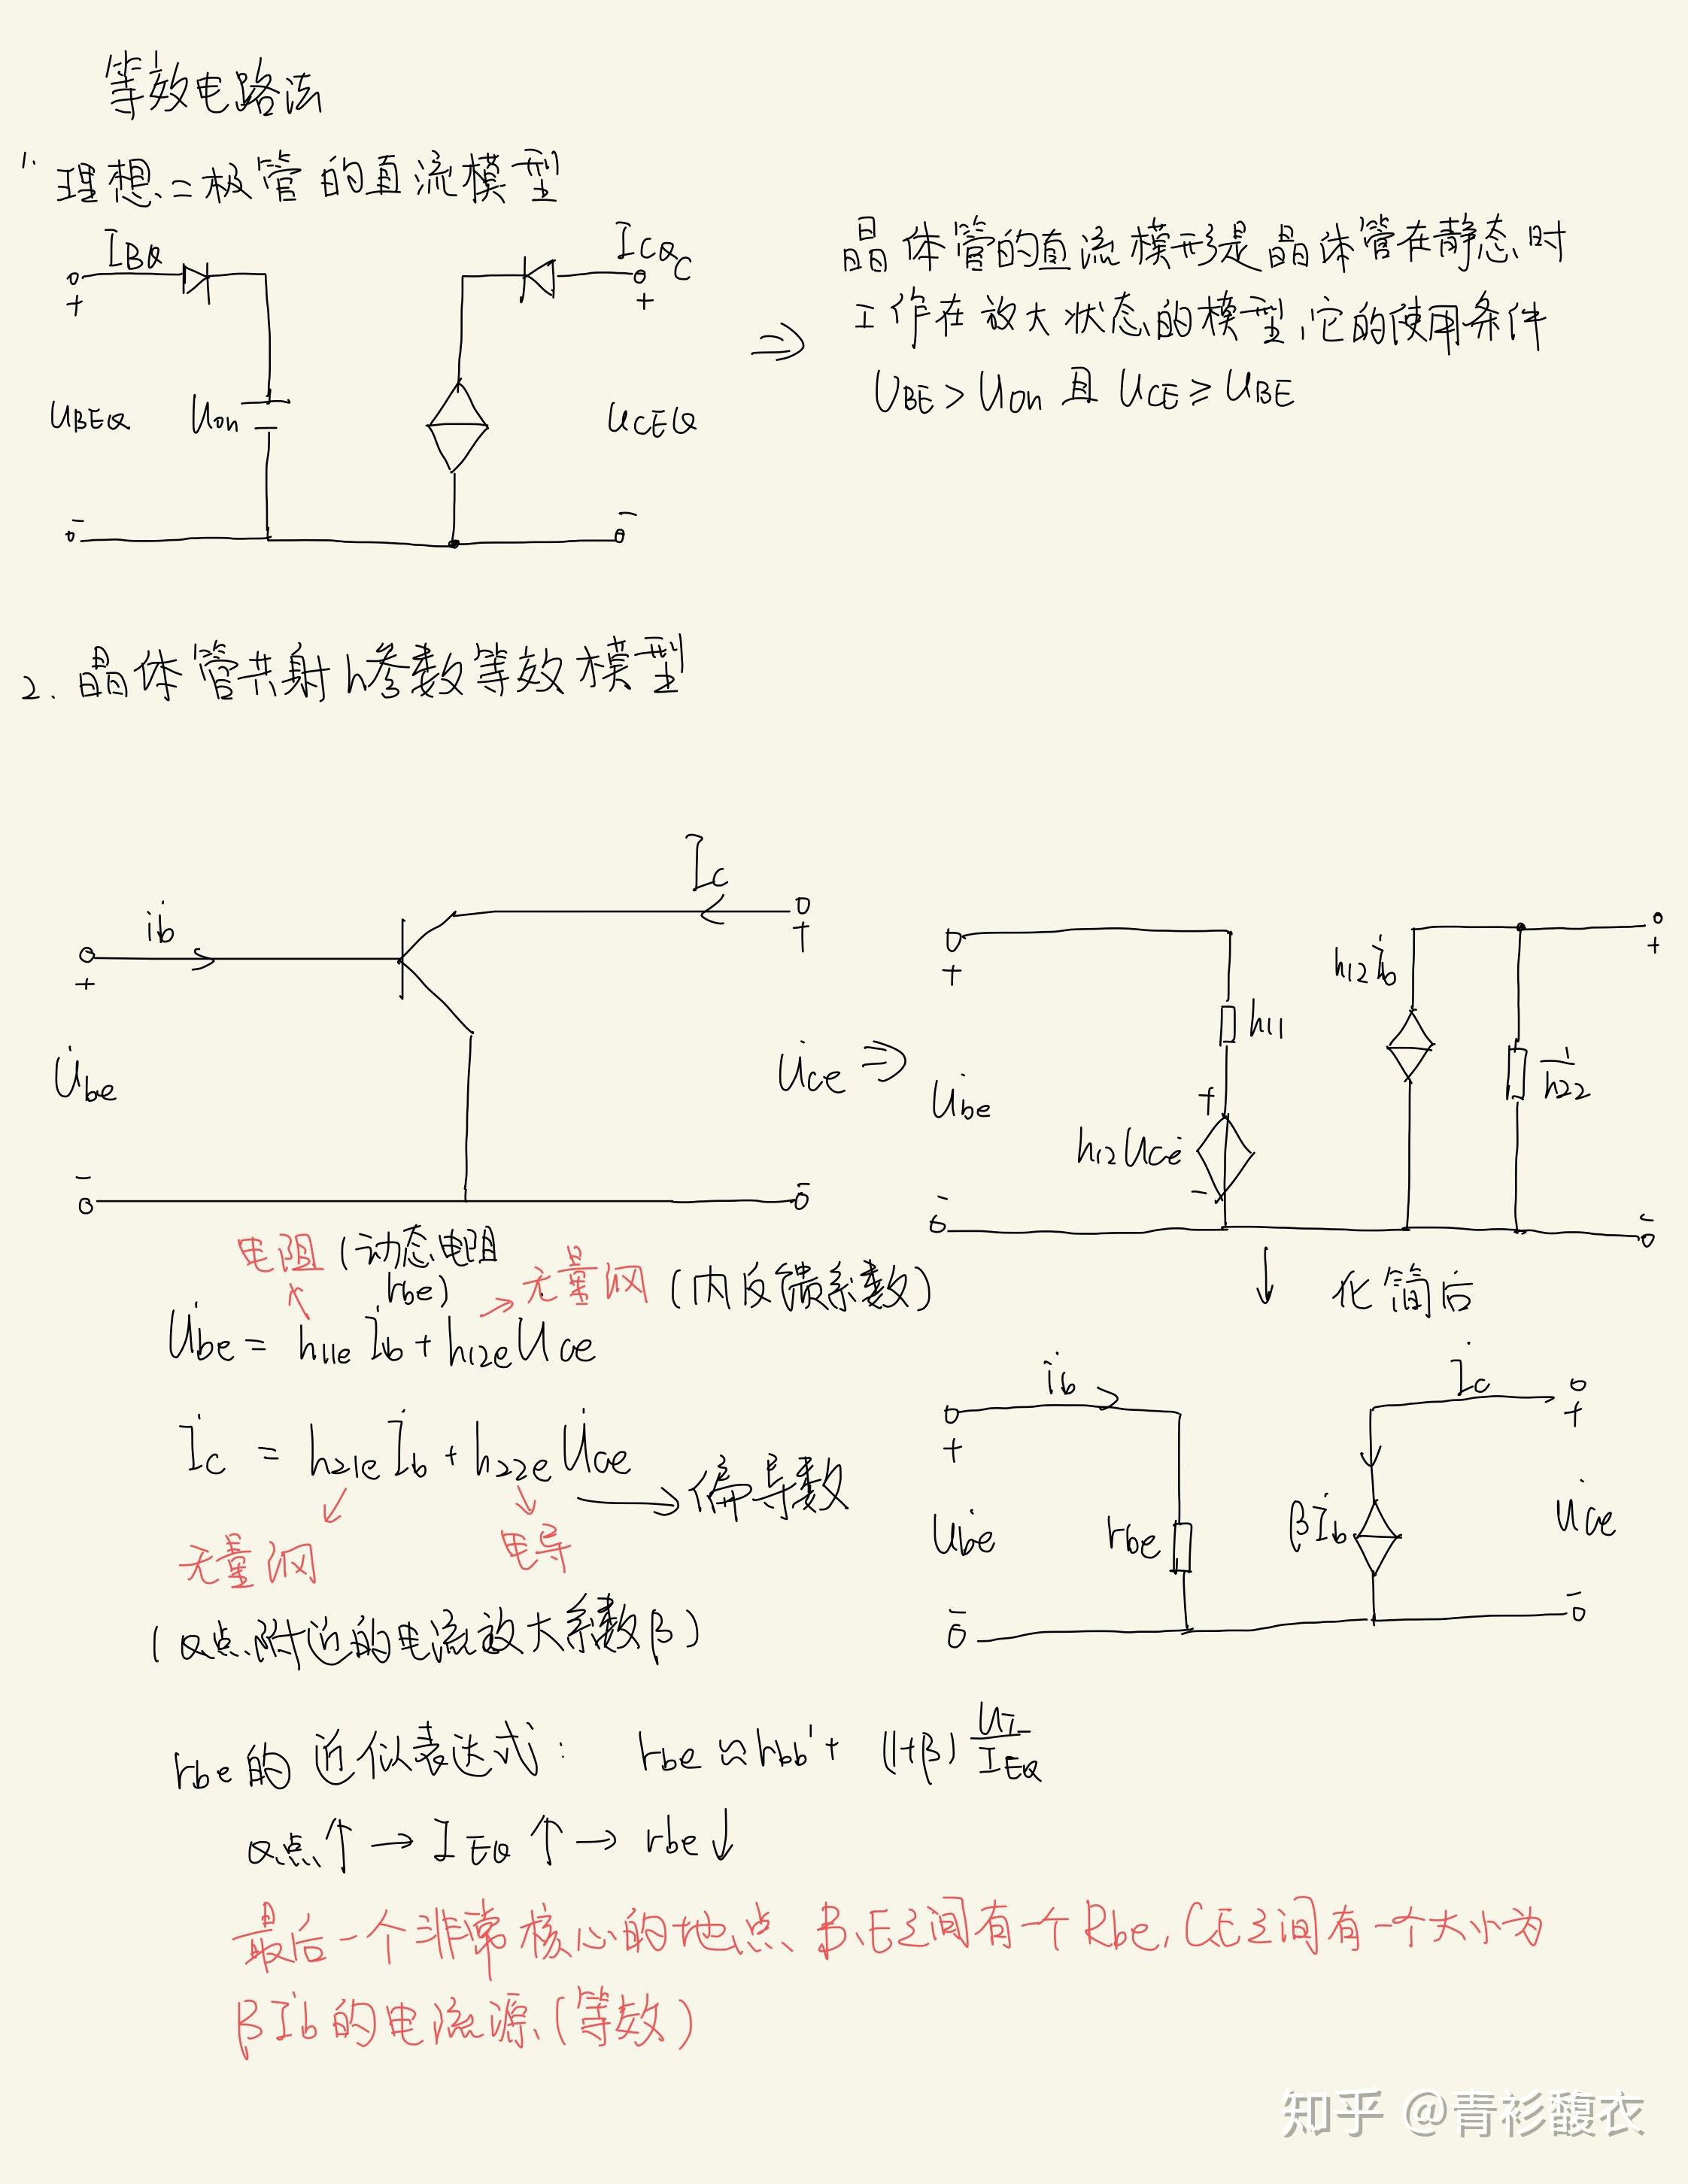 等效电路法
1. 理想二极管的直流模型
IBQ
ICQ
C
+
+
UBEQ
Uon
UCEQ
-
-
⇒
晶体管的直流模形是晶体管在静态时
工作在放大状态的模型,它的使用条件
UBE > Uon 且 UCE ≥ UBE
2. 晶体管共射h参数等效模型
ib
Ic
+
+
U̇be
U̇ce
-
-
⇒
+
+
h11
h12 İb
1/h22
U̇be
+
h12 U̇ce
-
-
-
↓ 化简后
电阻 (动态电阻
rbe)
无量纲 (内反馈系数)
U̇be = h11e İb + h12e U̇ce
İc = h21e İb + h22e U̇ce → 偏导数
无量纲
电导
(Q点附近的电流放大系数β)
i̇b
İc
+
+
U̇be
rbe
βİb
U̇ce
-
-
rbe的近似表达式: rbe ≈ rbb' + (1+β) UT/IEQ
Q点↑ → IEQ↑ → rbe↓
最后一个非常核心的地点、B、E之间有一个Rbe,C、E之间有一个大小为
βİb的电流源、(等效)
知乎 @青衫馥衣